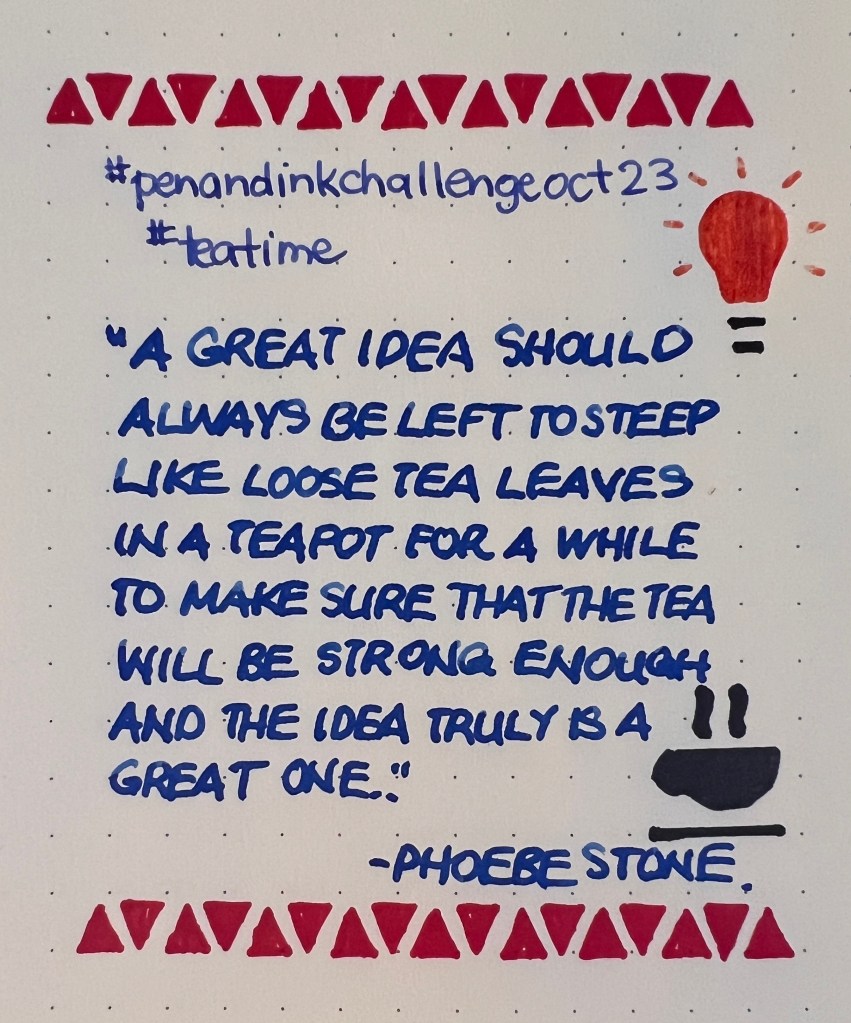 #penandinkchallengeoct23
#teatime
"A GREAT IDEA SHOULD
ALWAYS BE LEFT TO STEEP
LIKE LOOSE TEA LEAVES
IN A TEAPOT FOR A WHILE
TO MAKE SURE THAT THE TEA
WILL BE STRONG ENOUGH
AND THE IDEA TRULY IS A
GREAT ONE."
-PHOEBE STONE.